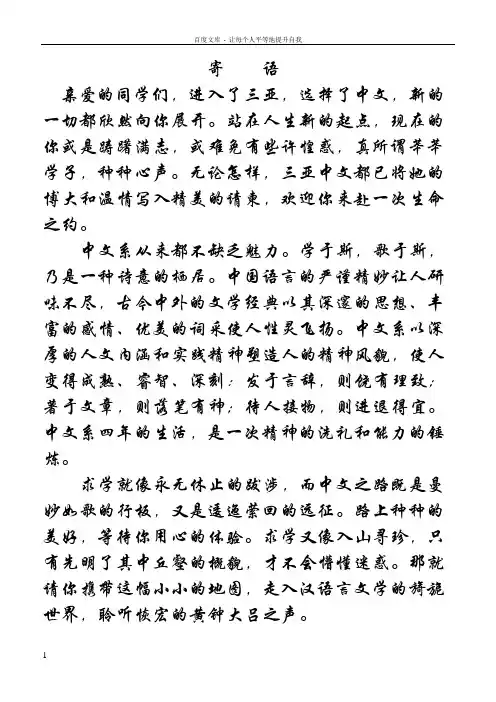 百度文库 - 让每个人平等地提升自我
寄　　语
亲爱的同学们，进入了三亚，选择了中文，新的
一切都欣然向你展开。站在人生新的起点，现在的
你或是踌躇满志，或难免有些许惶惑，真所谓莘莘
学子，种种心声。无论怎样，三亚中文都已将她的
博大和温情写入精美的请柬，欢迎你来赴一次生命
之约。
中文系从来都不缺乏魅力。学于斯，歌于斯，
乃是一种诗意的栖居。中国语言的严谨精妙让人研
味不尽，古今中外的文学经典以其深邃的思想、丰
富的感情、优美的词采使人性灵飞扬。中文系以深
厚的人文内涵和实践精神塑造人的精神风貌，使人
变得成熟、睿智、深刻：发于言辞，则饶有理致；
著于文章，则落笔有神；待人接物，则进退得宜。
中文系四年的生活，是一次精神的洗礼和能力的锤
炼。
求学就像永无休止的跋涉，而中文之路既是曼
妙如歌的行板，又是逶迤萦回的远征。路上种种的
美好，等待你用心的体验。求学又像入山寻珍，只
有先明了其中丘壑的概貌，才不会懵懂迷惑。那就
请你携带这幅小小的地图，走入汉语言文学的旖旎
世界，聆听恢宏的黄钟大吕之声。
1